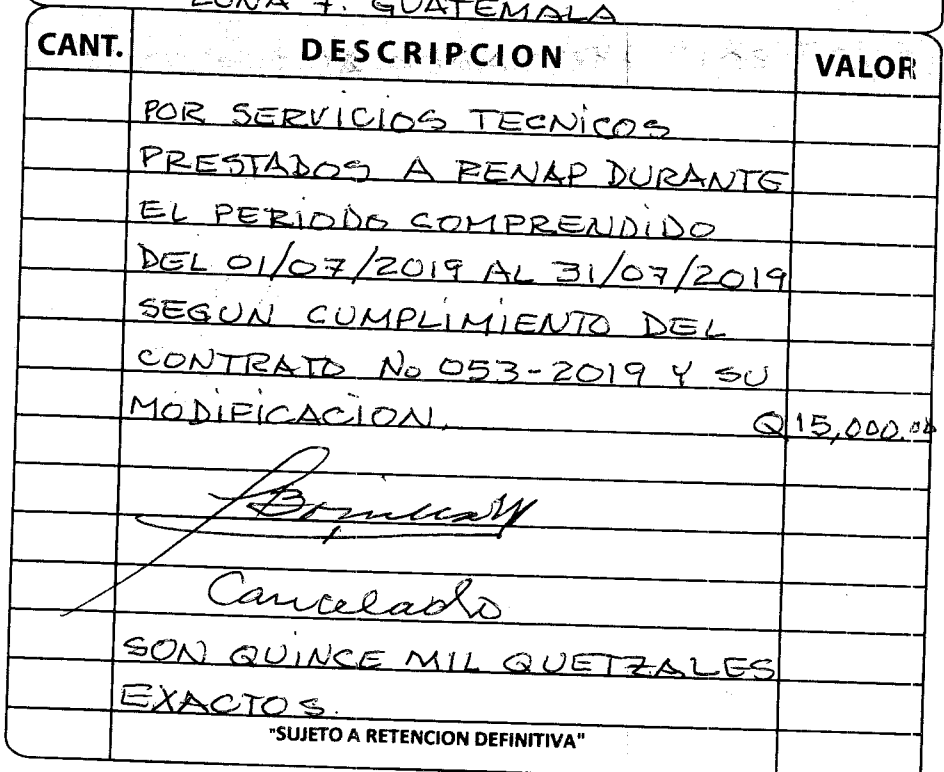 ZONA 7. GUATEMALA
CANT. DESCRIPCION VALOR
POR SERVICIOS TECNICOS
PRESTADOS A RENAP DURANTE
EL PERIODO COMPRENDIDO
DEL 01/07/2019 AL 31/07/2019
SEGUN CUMPLIMIENTO DEL
CONTRATO No 053-2019 Y SU
MODIFICACION. Q 15,000.00
Cancelado
SON QUINCE MIL QUETZALES
EXACTOS.
"SUJETO A RETENCION DEFINITIVA"